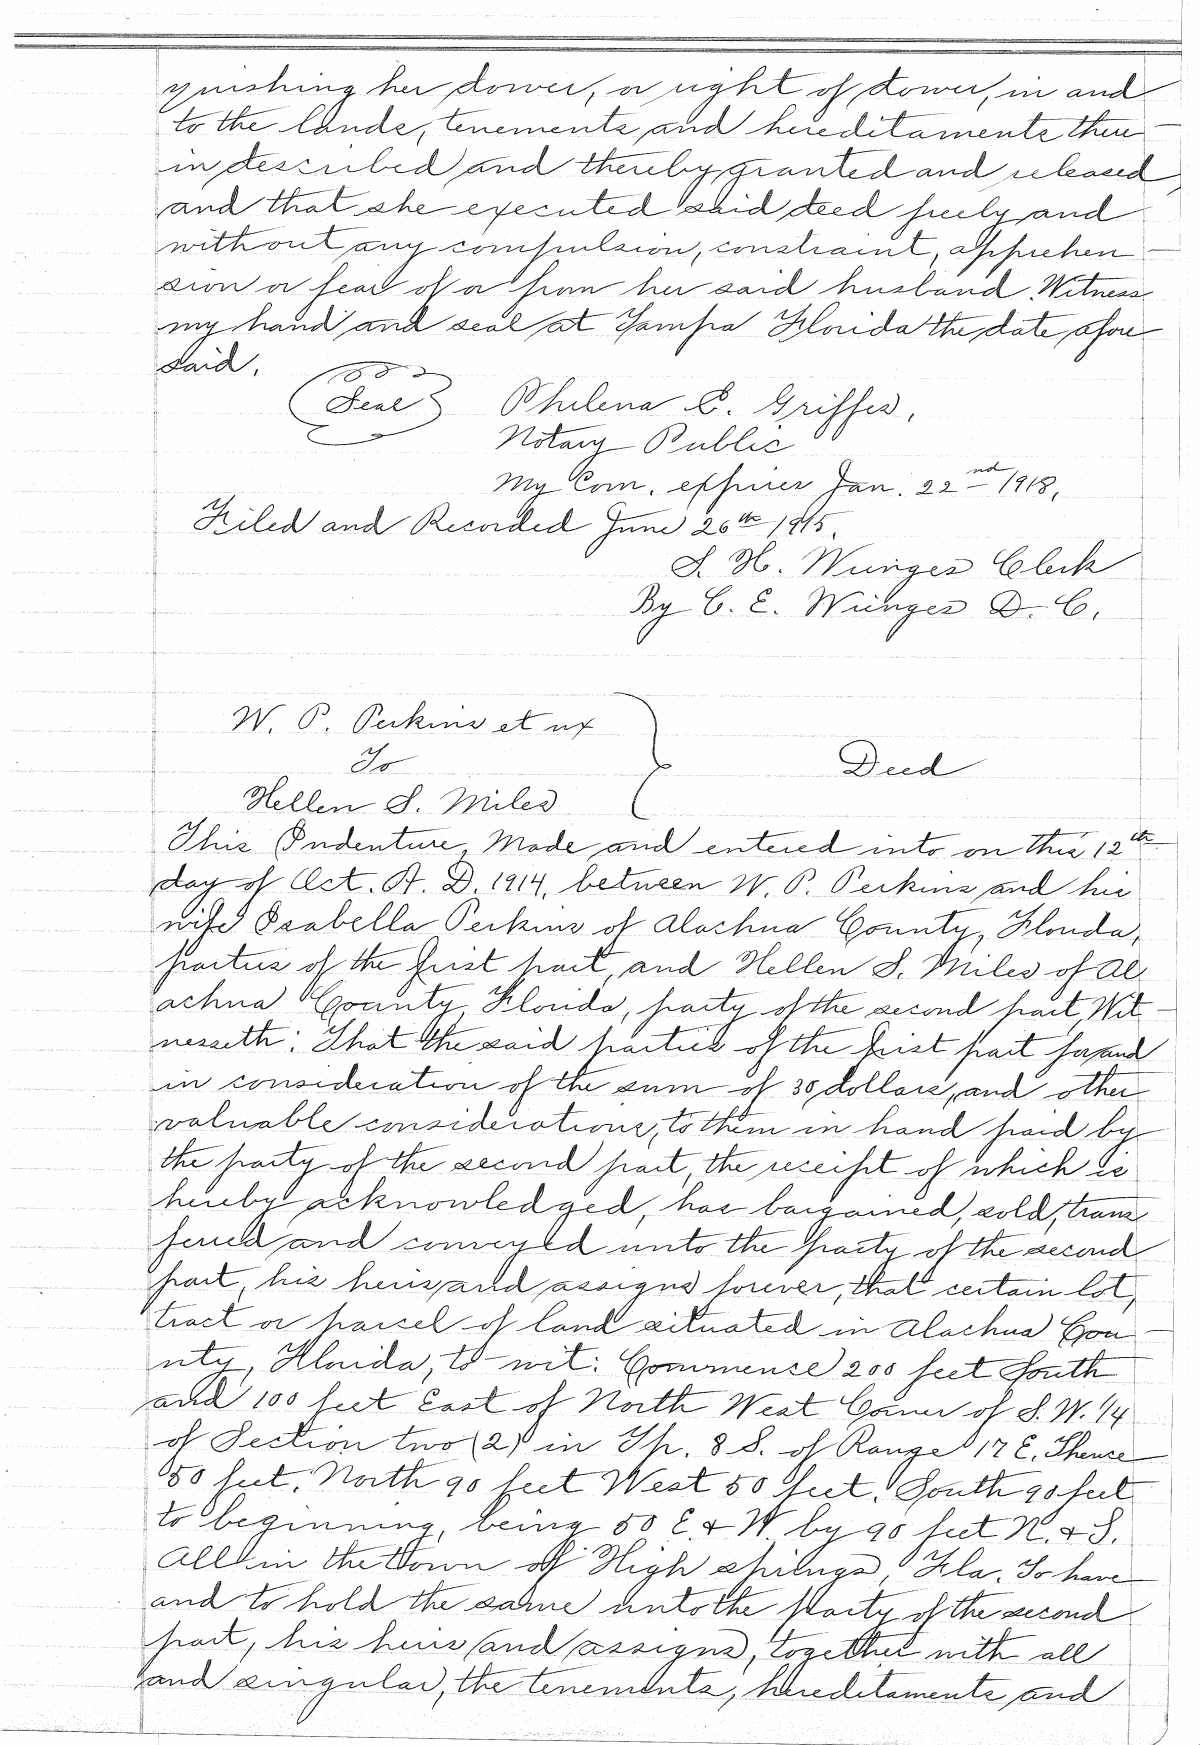 quishing her dower, or right of dower, in and
to the lands, tenements and hereditaments there-
in described and thereby granted and released,
and that she executed said deed freely and
without any compulsion, constraint, apprehen-
sion or fear of or from her said husband. Witness
my hand and seal at Tampa Florida the date afore
said.
Seal Philena C. Griffes,
Notary Public
My Com. expires Jan. 22nd 1918,
Filed and Recorded June 26th 1915.
S. H. Wienges Clerk
By C. E. Wienges D. C.
W. P. Perkins et ux
To
Deed
Hellen S. Miles
This Indenture, Made and entered into on this 12th
day of Oct. A. D. 1914, between W. P. Perkins and his
wife Isabella Perkins of Alachua County, Florida,
parties of the first part, and Hellen S. Miles of Al
achua County, Florida, party of the second part, Wit-
nesseth: That the said parties of the first part for and
in consideration of the sum of 30 dollars, and other
valuable considerations, to them in hand paid by
the party of the second part, the receipt of which is
hereby acknowledged, has bargained, sold, trans
ferred and conveyed unto the party of the second
part, his heirs and assigns forever, that certain lot,
tract or parcel of land situated in Alachua Cou-
nty, Florida, to-wit: Commence 200 feet South
and 100 feet East of North West Corner of S. W. 1/4
of Section two (2) in Tp. 8 S. of Range 17 E. Thence
50 feet. North 90 feet West 50 feet. South 90 feet
to beginning, being 50 E. & W. by 90 feet N. & S.
All in the town of High springs, Fla. To have
and to hold the same unto the party of the second
part, his heirs and assigns, together with all
and singular, the tenements, hereditaments and